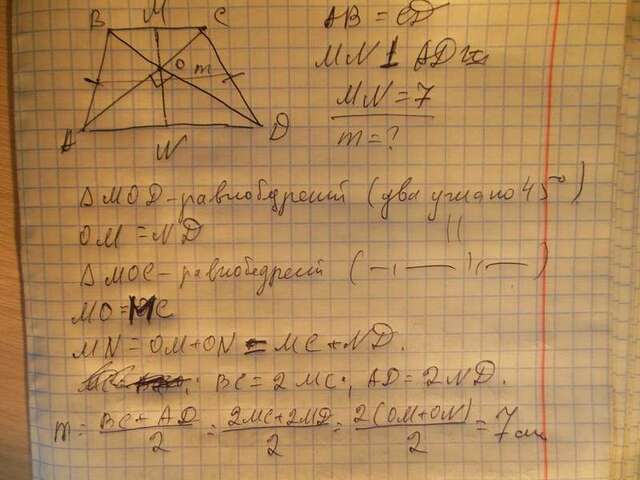 B M C
O m
A N D
AB = CD
MN ⊥ AD
MN = 7
m = ?
△MOD - равнобедрений (два угла по 45°)
OM = ND
△MOC - равнобедрений ( — " — " — )
MO = MC
MN = OM + ON = MC + ND.
BC = 2MC; AD = 2ND.
m = (BC + AD)/2 = (2MC + 2MD)/2 = (2(OM + ON))/2 = 7 см